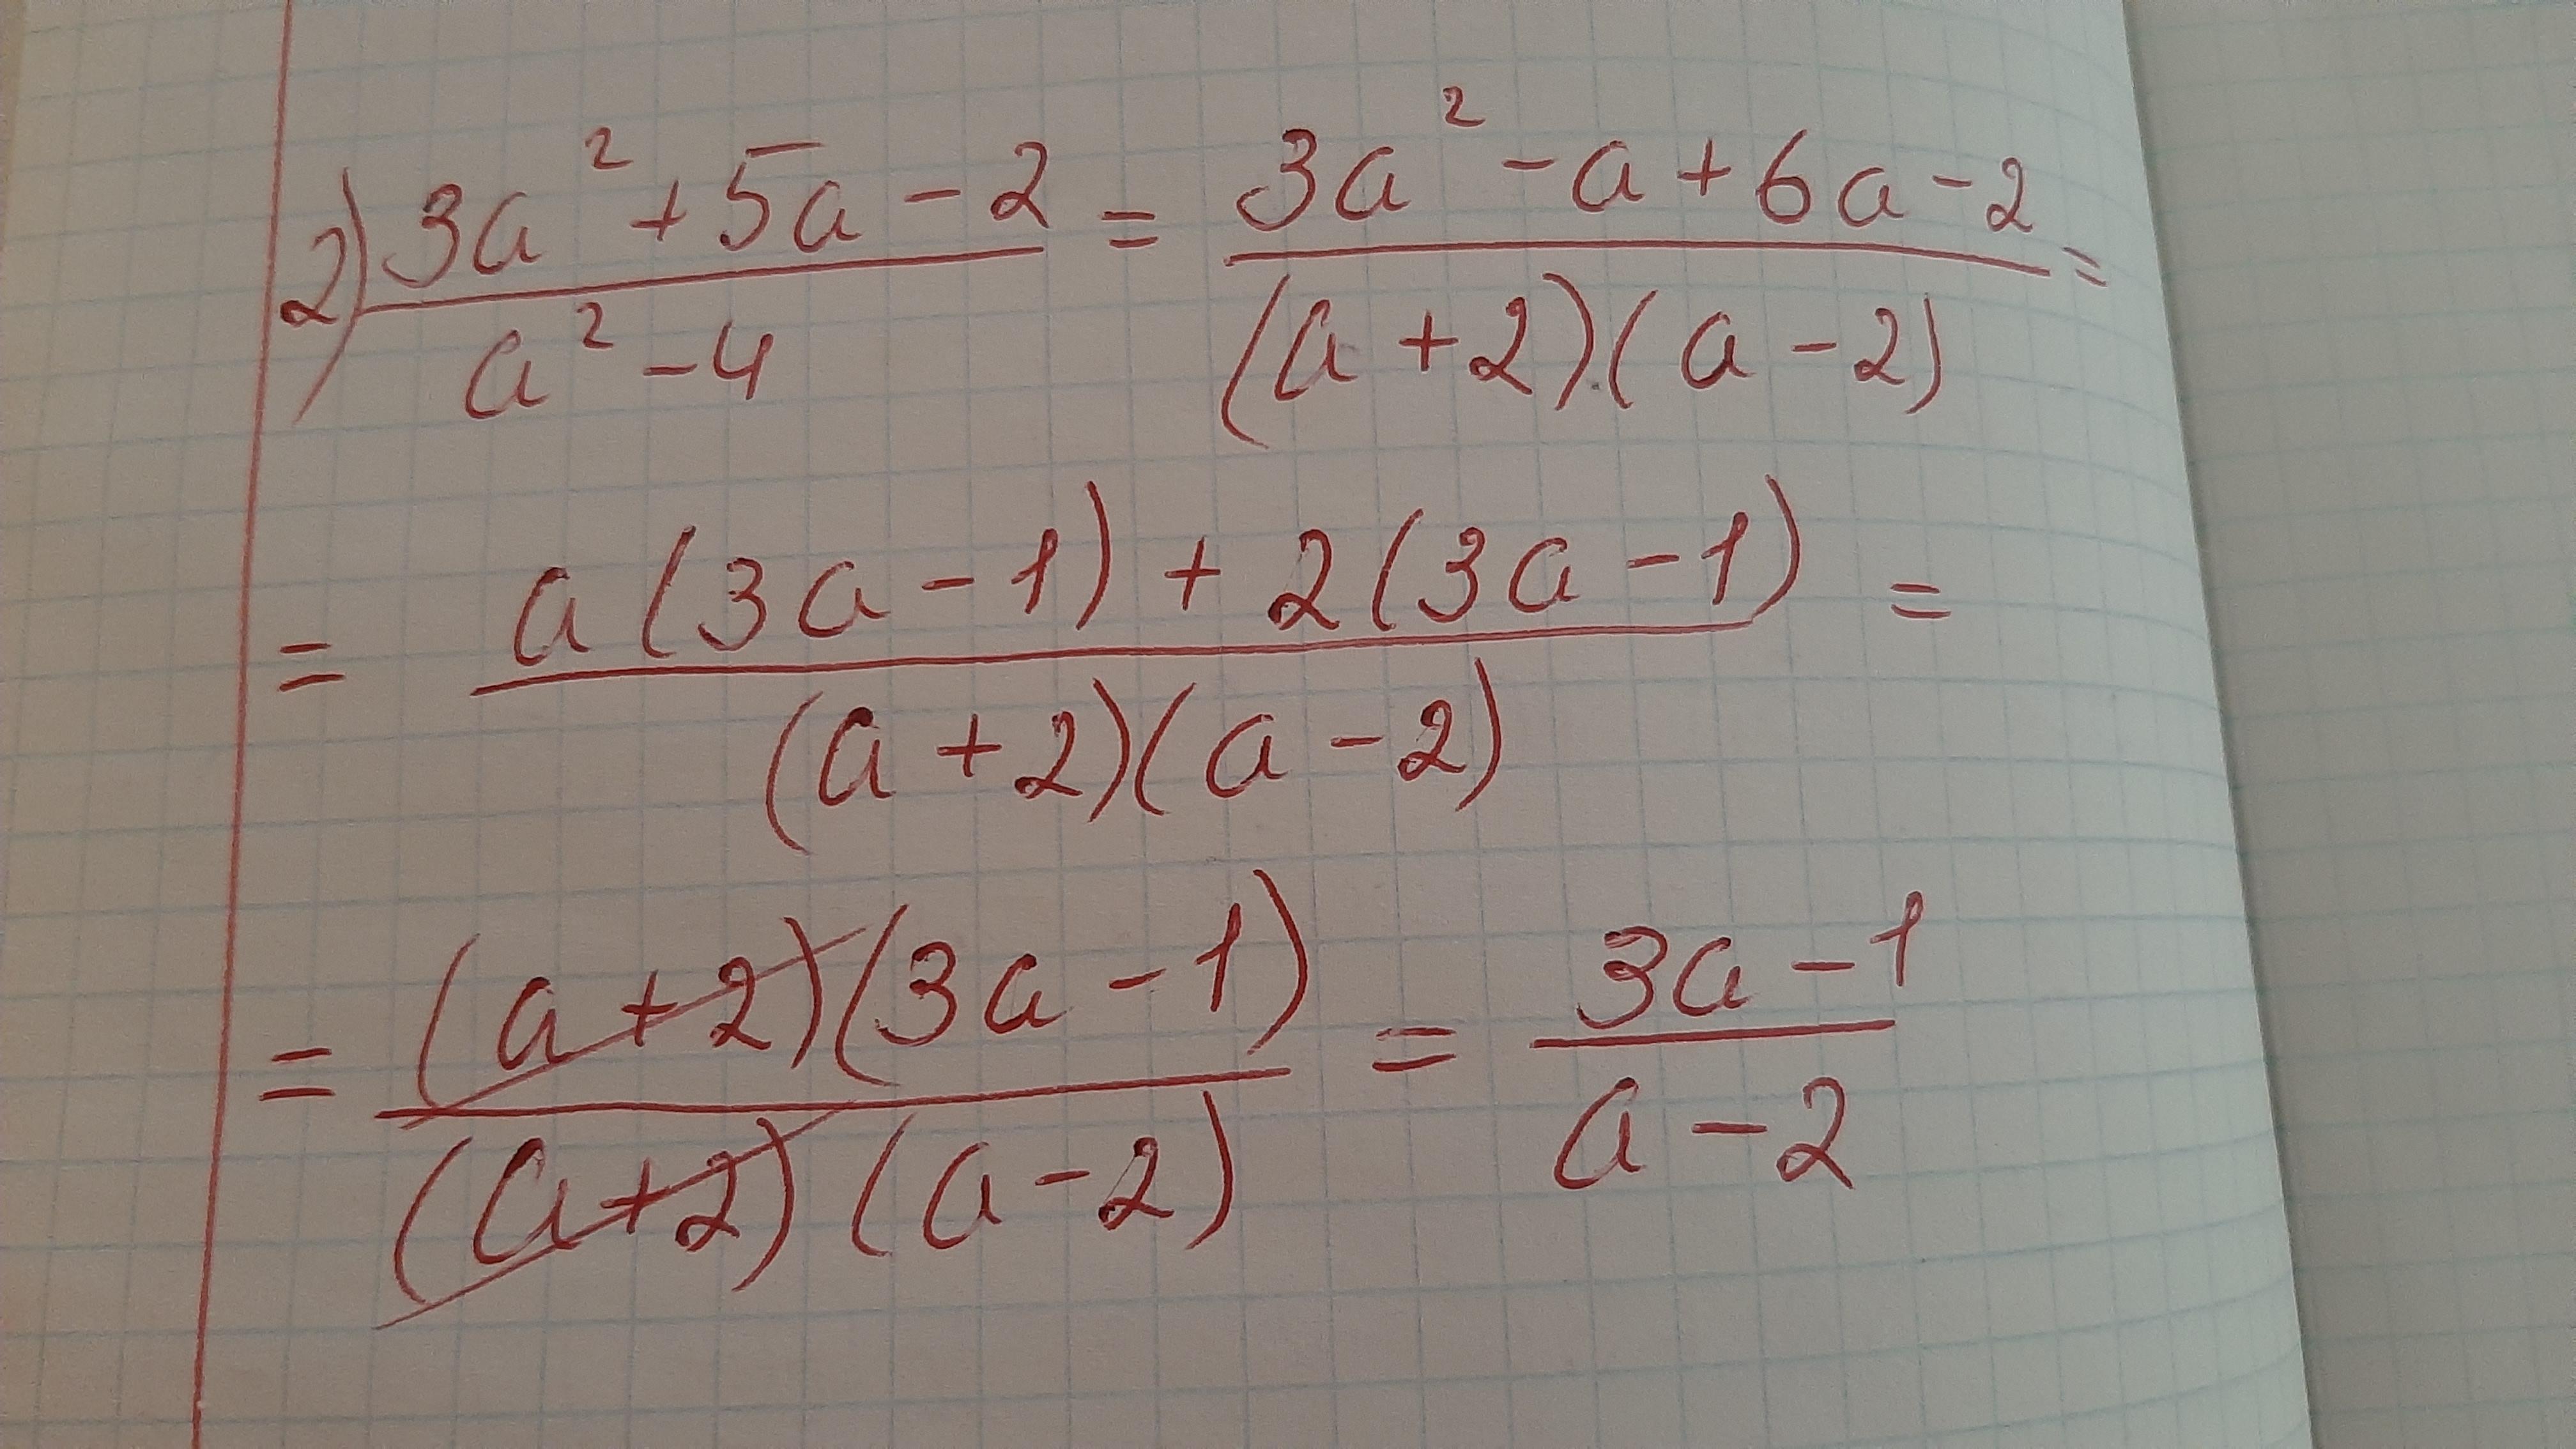 2) (3a² + 5a - 2)/(a² - 4) = (3a² - a + 6a - 2)/((a + 2)·(a - 2)) =
= (a(3a - 1) + 2(3a - 1))/((a + 2)(a - 2)) =
= ((a + 2)(3a - 1))/((a + 2)(a - 2)) = (3a - 1)/(a - 2)